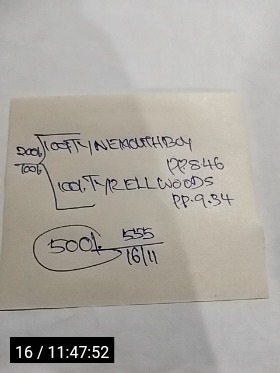 200%
TOOL
100% TYNEMOUTH BOY
PP. 8.46
100% TYRELL WOODS
PP. 9.34
500% 555
16/11
16 / 11:47:52